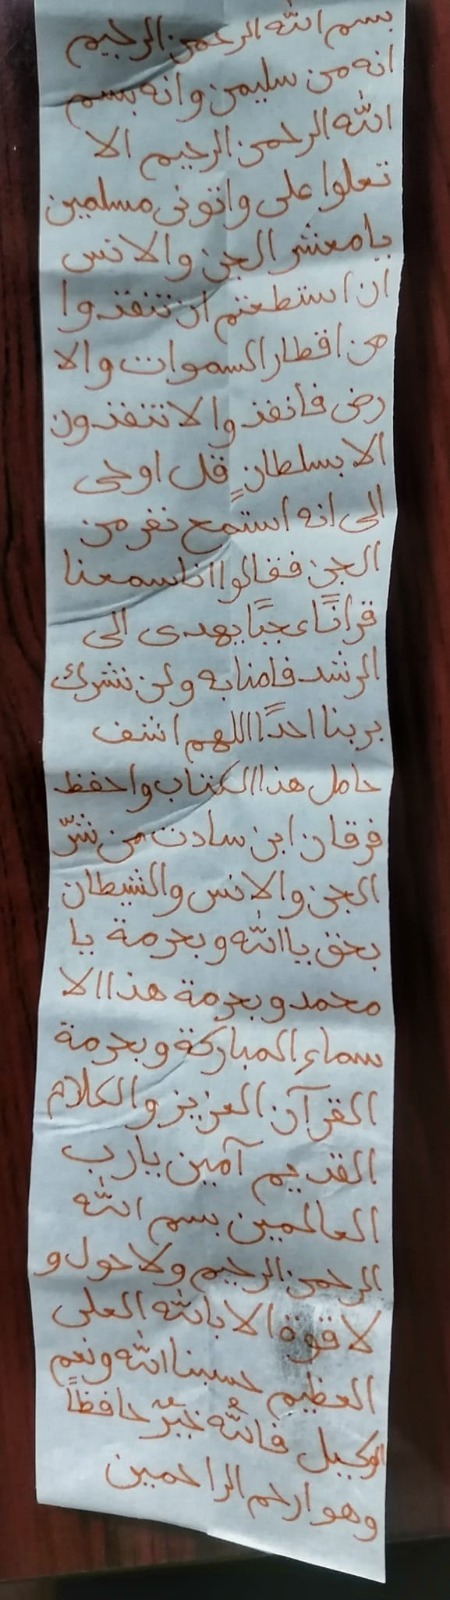 بسم الله الرحمن الرحيم
انه من سليمن وانه بسم
الله الرحمن الرحيم الا
تعلوا على واتونى مسلمين
يا معشر الجن والانس
ان استطعتم ان تنفذوا
من اقطار السموات والا
رض فانفذوا لا تنفذون
الا بسلطانٍ قل اوحى
الى انه استمع نفر من
الجن فقالوا انا سمعنا
قراناً عجبًا يهدى الى
الرشد فامنا به ولن نشرك
بربنا احدًا اللهم اشف
حامل هذا الكتاب واحفظ
فرقان ابن سادت من شرّ
الجن والانس والشيطان
بحق يا الله وبحرمة يا
محمد وبحرمة هذا الا
سماء المباركة وبحرمة
القرآن العزيز والكلام
القديم آمين يا رب
العالمين بسم الله
الرحمن الرحيم ولا حول و
لا قوة الا بالله العلى
العظيم حسبنا الله ونعم
الوكيل فاللّه خيرٌ حافظاً
وهو ارحم الراحمين